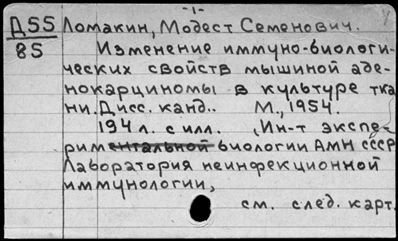 -1-
Д55 Ломакин, Модест Семенович.
85 Изменение иммуно-биологи-
ческих свойств мышиной аде-
нокарциномы в культуре тка
ни. Дисс. канд.. М., 1954.
194 л. с илл. Ин-т экспе-
риментальной биологии АМН СССР
Лаборатория неинфекционной
иммунологии,
см. след. карт.